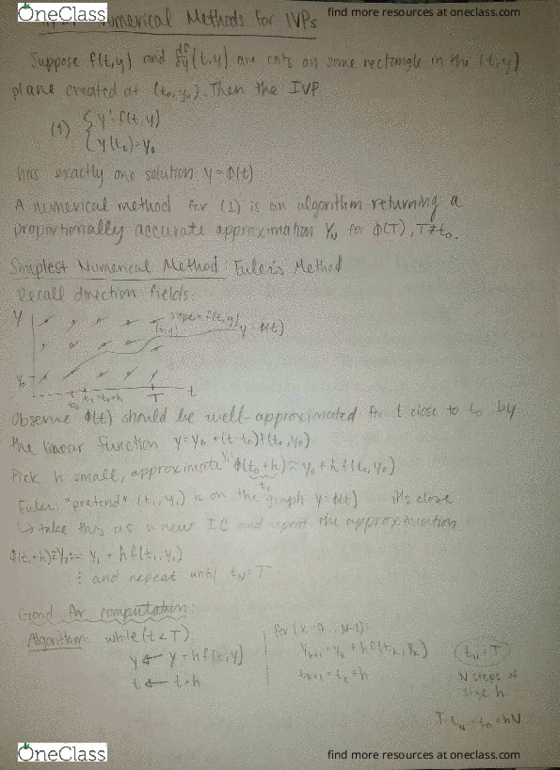 OneClass
find more resources at oneclass.com
Numerical Methods for IVPs
Suppose f(t,y) and ∂f/∂y (t,y) are cnts on some rectangle in the (t,y)
plane created at (t₀,y₀). Then the IVP
(1) { y'=f(t,y)
y(t₀)=y₀
has exactly one solution y=ϕ(t)
A numerical method for (1) is an algorithm returning a
proportionally accurate approximation Y_N for ϕ(T), T≠t₀.
Simplest Numerical Method: Euler's Method
Recall direction fields:
y
slope=f(t,y)
y=ϕ(t)
y₀
t₀ t₁=t₀+h T t
Observe ϕ(t) should be well-approximated for t close to t₀ by
the linear function y=y₀+(t-t₀)f(t₀,y₀)
Pick h small, approximate ϕ(t₀+h)≈y₀+hf(t₀,y₀)
t₁
Euler: "pretend" (t₁,y₁) is on the graph y=ϕ(t) it's close
↳ take this as a new IC and repeat the approximation
ϕ(t₁+h)≈y₂:= y₁+hf(t₁,y₁)
⋮ and repeat until t_N=T
Good for computation:
Algorithm: while(t<T)
y ← y+hf(t,y)
t ← t+h
for(k=0...N-1):
y_{k+1}=y_k+hf(t_k,y_k)
t_{k+1}=t_k+h
t_N=T
N steps of
size h
T=t_N=t₀+hN
OneClass
find more resources at oneclass.com